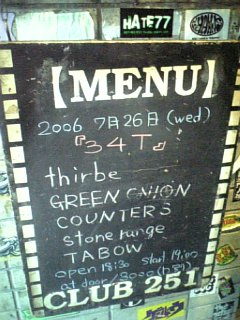 HATE77
【MENU】
2006 7月26日(wed)
『34T』
thirbe
GREEN ONION
COUNTERS
stone range
TABOW
open 18:30 start 19:00
at door 3000
CLUB 251